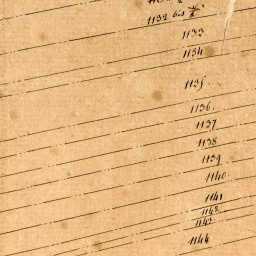 1132 bis
1133
1134
1135.
1136.
1137
1138
1139
1140
1141
1142
1143
1144